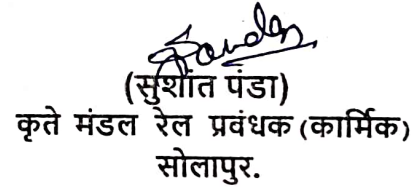 (सुशांत पंडा)
कृते मंडल रेल प्रवंधक (कार्मिक)
सोलापुर.